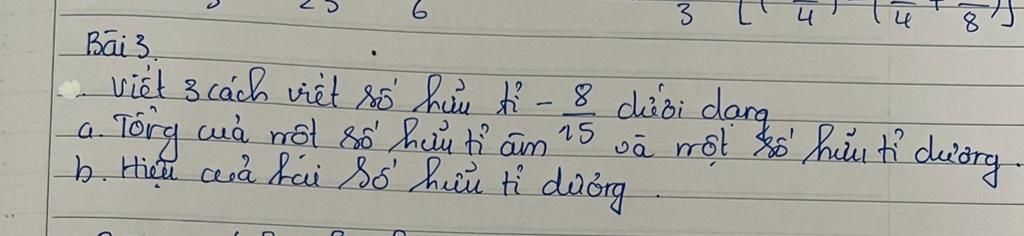 3 25 6 3 [( 4 ) - ( 4 + 8 )]
Bài 3.
Viết 3 cách viết số hữu tỉ - 8/15 dưới dạng
a. Tổng của một số hữu tỉ âm và một số hữu tỉ dương.
b. Hiệu của hai số hữu tỉ dương.